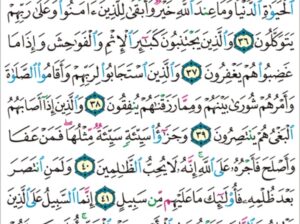 الْحَيَوٰةِ الدُّنْيَا وَمَا عِندَ اللَّهِ خَيْرٌ وَأَبْقَىٰ لِلَّذِينَ ءَامَنُوا۟ وَعَلَىٰ رَبِّهِمْ
يَتَوَكَّلُونَ ٣٦ وَالَّذِينَ يَجْتَنِبُونَ كَبَٰٓئِرَ الْإِثْمِ وَالْفَوَٰحِشَ وَإِذَا مَا
غَضِبُوا۟ هُمْ يَغْفِرُونَ ٣٧ وَالَّذِينَ اسْتَجَابُوا۟ لِرَبِّهِمْ وَأَقَامُوا۟ الصَّلَوٰةَ
وَأَمْرُهُمْ شُورَىٰ بَيْنَهُمْ وَمِمَّا رَزَقْنَٰهُمْ يُنفِقُونَ ٣٨ وَالَّذِينَ إِذَآ أَصَابَهُمُ
الْبَغْىُ هُمْ يَنتَصِرُونَ ٣٩ وَجَزَٰٓؤُا۟ سَيِّئَةٍ سَيِّئَةٌ مِّثْلُهَا ۖ فَمَنْ عَفَا
وَأَصْلَحَ فَأَجْرُهُۥ عَلَى اللَّهِ ۚ إِنَّهُۥ لَا يُحِبُّ الظَّٰلِمِينَ ٤٠ وَلَمَنِ انتَصَرَ
بَعْدَ ظُلْمِهِۦ فَأُو۟لَٰٓئِكَ مَا عَلَيْهِم مِّن سَبِيلٍ ٤١ إِنَّمَا السَّبِيلُ عَلَى الَّذِينَ